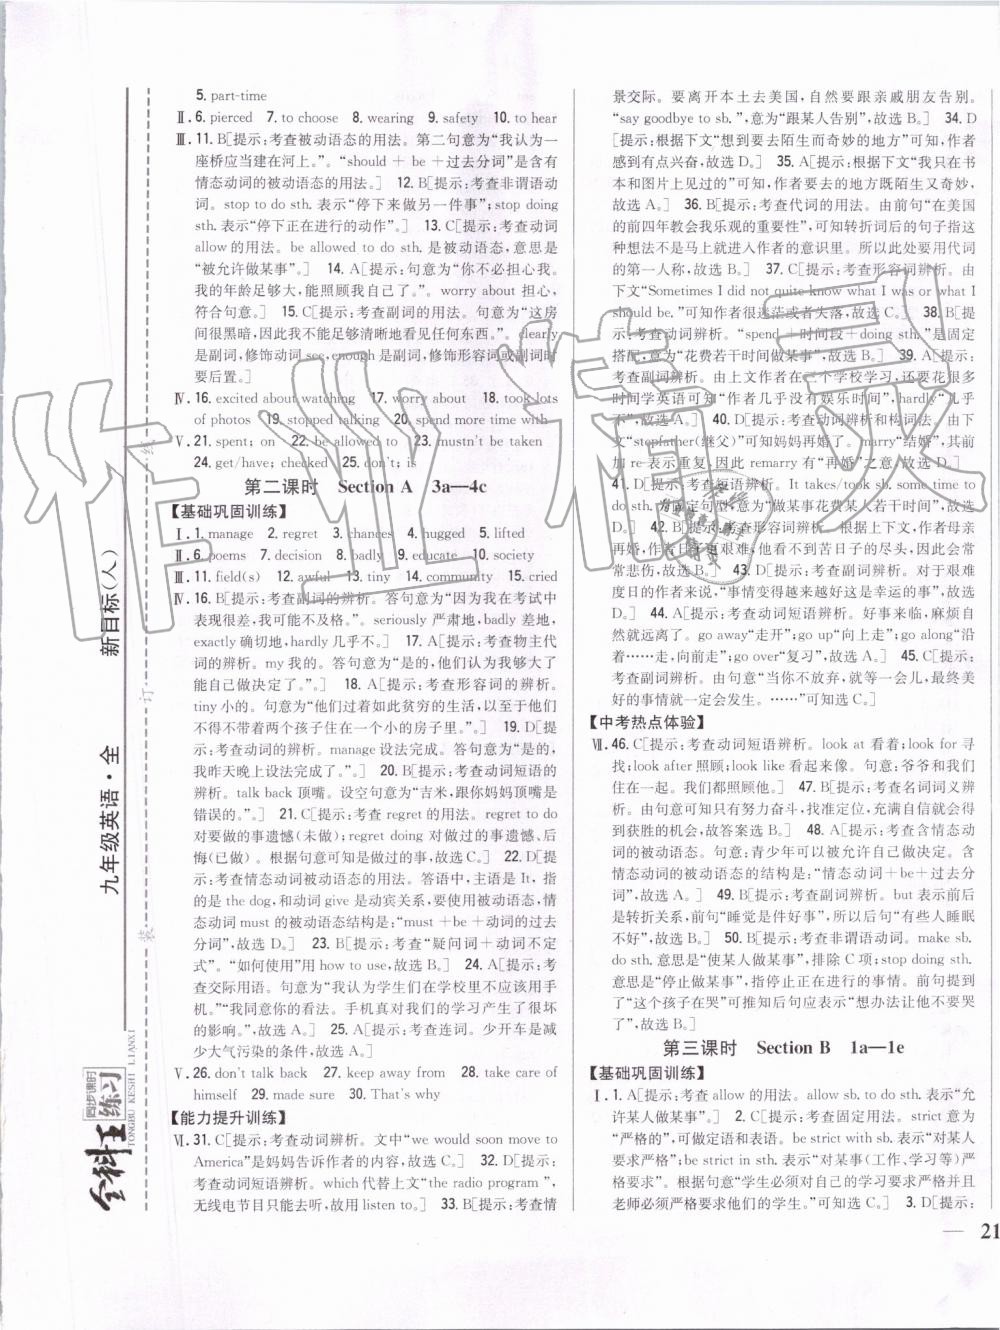 5. part-time
Ⅱ. 6. pierced 7. to choose 8. wearing 9. safety 10. to hear
Ⅲ. 11. B[提示:考查被动语态的用法。第二句意为“我认为一
座桥应当建在河上。”。“should + be +过去分词”是含有
情态动词的被动语态的用法。] 12. B[提示:考查非谓语动
词。stop to do sth. 表示“停下来做另一件事”;stop doing
sth. 表示“停下正在进行的动作”。] 13. C[提示:考查动词
allow 的用法。be allowed to do sth. 是被动语态,意思是
“被允许做某事”。] 14. A[提示:句意为“你不必担心我。
我的年龄足够大,能照顾我自己了。”。worry about 担心,
符合句意。] 15. C[提示:考查副词的用法。句意为“这房
间很黑暗,因此我不能足够清晰地看见任何东西。”。clearly
是副词,修饰动词 see,enough 是副词,修饰形容词或副词时
要后置。]
Ⅳ. 16. excited about watching 17. worry about 18. took lots
of photos 19. stopped talking 20. spend more time with
Ⅴ. 21. spent; on 22. be allowed to 23. mustn't be taken
24. get/have; checked 25. don't; is
第二课时 Section A 3a—4c
【基础巩固训练】
Ⅰ. 1. manage 2. regret 3. chances 4. hugged 5. lifted
Ⅱ. 6. poems 7. decision 8. badly 9. educate 10. society
Ⅲ. 11. field(s) 12. awful 13. tiny 14. community 15. cried
Ⅳ. 16. B[提示:考查副词的辨析。答句意为“因为我在考试中
表现很差,我可能不及格。”。seriously 严肃地,badly 差地,
exactly 确切地,hardly 几乎不。] 17. A[提示:考查物主代
词的辨析。my 我的。答句意为“是的,他们认为我够大了
能自己做决定了。”。] 18. A[提示:考查形容词的辨析。
tiny 小的。句意为“他们过着如此贫穷的生活,以至于他们
不得不带着两个孩子住在一个小的房子里。”。] 19. D[提
示:考查动词的辨析。manage 设法完成。答句意为“是的,
我昨天晚上设法完成了。”。] 20. A[提示:考查动词短语的
辨析。talk back 顶嘴。设空句意为“吉米,跟你妈妈顶嘴是
错误的。”。] 21. C[提示:考查 regret 的用法。regret to do
对要做的事遗憾(未做);regret doing 对做过的事遗憾、后
悔(已做)。根据句意可知,故选 C。] 22. D[提示:考查含
情态动词被动语态的用法。答语中,主语是 It, 指
的是 the dog,和动词 give 是动宾关系,要使用被动语态,情
态动词 must 的被动语态结构是:“must +be +动词的过去
分词”,故选 D。] 23. B[提示:考查“疑问词+动词不定
式”。“如何使用”用 how to use,故选 B。] 24. A[提示:
考查交际用语。句意为“我认为学生们在学校里不应该用手
机。”“我同意你的看法。手机真对我们的学习产生了很坏
的影响。”,故选 A。] 25. A[提示:考查连词。少开车是减
少大气污染的条件,故选 A。]
Ⅴ. 26. don't talk back 27. keep away from 28. take care of
himself 29. made sure 30. That's why
【能力提升训练】
Ⅵ. 31. C[提示:考查动词辨析。文中“we would soon move to
America”是妈妈告诉作者的内容,故选 C。] 32. D[提示:
考查动词短语辨析。which 代替上文“the radio program”,
无线电节目只能去听,故用 listen to。] 33. B[提示:考查情
景交际。要离开本土去美国,自然要跟亲戚朋友告别。
“say goodbye to sb. ”,意为“跟某人告别”,故选 B。] 34. D
[提示:根据下文“想到要去陌生而奇妙的地方”可知,作者
感到有点兴奋,故选 D。] 35. A[提示:根据下文“我只在书
本和图片上见到过”可知,作者要去的地方既陌生又奇妙,
故选 A。] 36. B[提示:考查代词的用法。由前句“在美国
的前四年教会我乐观的重要性”,可知转折词后的句子指这
种想法不是马上就进入作者的意识里。所以此处要用代词
的第一人称,故选 B。] 37. C[提示:考查形容词辨析。由
下文“Sometimes I did not quite know what I was or what I
should be. ”可知作者很迷茫或者失落,故选 C。] 38. B[提
示:考查动词辨析。“spend +时间段+doing sth. ”是固定
搭配,意为“花费若干时间做某事”,故选 B。] 39. A[提示:
考查副词辨析。由上文作者在三个学校学习,还要花很多
时间学英语可知“作者几乎没有娱乐时间”,hardly“几乎
不”,故选 A。] 40. D[提示:考查动词辨析和构词法。由下
文“stepfather(继父)”可知妈妈再婚了。marry“结婚”,其前
加 re-表示重复,因此 remarry 有“再婚”之意,故选 D。]
41. D[提示:考查动词辨析。It takes/took sb. some time to
do sth. 为固定句型,意为“做某事花费某人若干时间”,故选
D。] 42. B[提示:考查形容词辨析。根据上下文,作者母亲
再婚,作者日子更艰难,他看不到苦日子的尽头,因此他常
常悲伤,故选 B。] 43. D[提示:考查副词辨析。对于艰难
度日的作者来说,“事情变得越来越好这是幸运的事”,故选
D。] 44. A[提示:考查动词短语辨析。好事来临,麻烦自
然而然就离开了。go away“走开”;go up“向上走”;go along“沿
着……走,向前走”;go over“复习”,故选 A。] 45. C[提示:
考查副词辨析。由句意“当你不放弃,就等一会儿,最终美
好的事情就一定会发生。……”可知选 C。]
【中考热点体验】
Ⅶ. 46. C[提示:考查动词短语辨析。look at 看着;look for 寻
找;look after 照顾;look like 看起来像。句意:爷爷和我们
住在一起。我妈妈在家照顾他。] 47. B[提示:考查名词词义辨
析。由句意可知只有努力奋斗,找准定位,充满自信就会得
到获胜的机会,故答案选 B。] 48. A[提示:考查含情态动词
的被动语态。句意:青少年可以被允许自己做选择。含
情态动词的被动语态的结构是:“情态动词+be+过去分
词”,故选 A。] 49. B[提示:考查副词辨析。but 表示前后
是转折关系,前句“睡觉是件好事”,所以后句“有些人睡眠
不好”,故选 B。] 50. B[提示:考查非谓语动词。make sb.
do sth. 意思是“使某人做某事”,排除 C 项;stop doing sth.
意思是“停止做某事”,指停止正在进行的事情。前句提到
了“这个孩子在哭”可推知后句应表示“想办法让他不要哭
了”,故选 B。]
第三课时 Section B 1a—1e
【基础巩固训练】
Ⅰ. 1. A[提示:考查 allow 的用法。allow sb. to do sth. 表示“允
许某人做某事”。] 2. C[提示:考查固定用法。strict 意为
“严格的”,可做定语和表语。be strict with sb. 表示“对某人
要求严格”;be strict in sth. 表示“对某事(工作、学习等)严
格要求”。根据句意“学生必须对自己的学习要求严格并且
老师必须严格要求他们的学生。”可知选 C。] 3. D[提示:
— 21
九年级英语·全 新目标(人)
装 订 线
全科王
同步课时
练习
TONGBU KESHI LIANXI
作业精灵